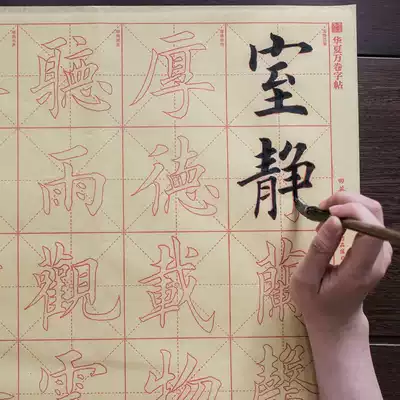 华夏万卷字帖
室静蘭馨
厚德載物
聽雨觀雲